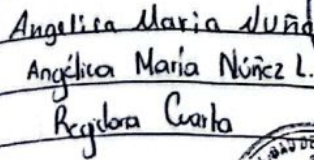 Angelica Maria Nuño
Angélica María Núñez L.
Regidora Cuarta